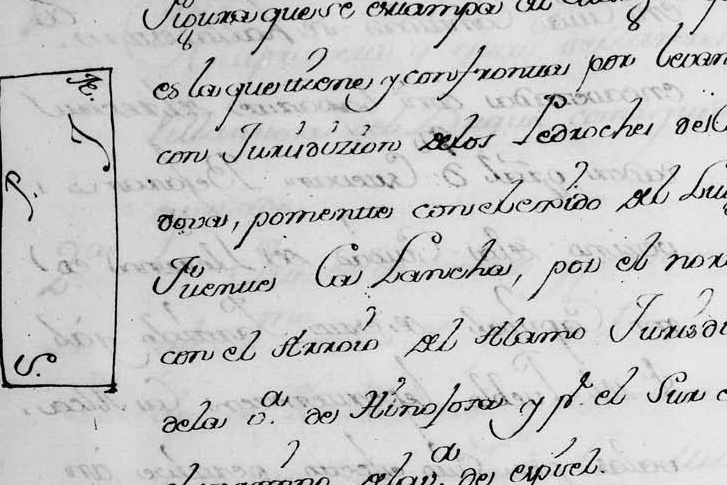 figura que se estampa al
es la que tiene y confronta por levan
con Jurisdizion de los Pedroches de C
dova, poniente con el exido del Lu
Fuente La Lancha, por el nor
con el Arroio del Alamo Jurisdi
de la v.ª de Hinojosa y pr. el Sur
de la v.ª de espiel.
N.
J
P.
S.